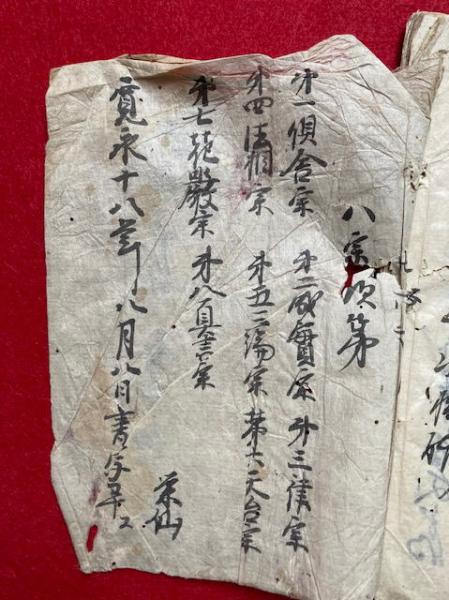 八宗次第
第一倶舎宗 第二成實宗 第三律宗
第四法相宗 第五三論宗 第六天台宗
第七花嚴宗 第八真言宗
寛永十八年八月八日書写畢
栄仙